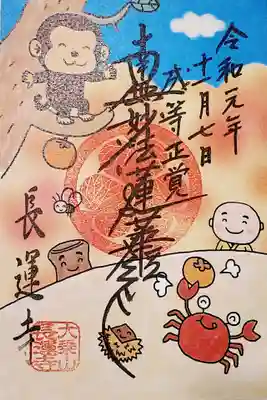 令和元年
十一月七日
成等正覚
南無妙法蓮華経
長運寺
長運寺